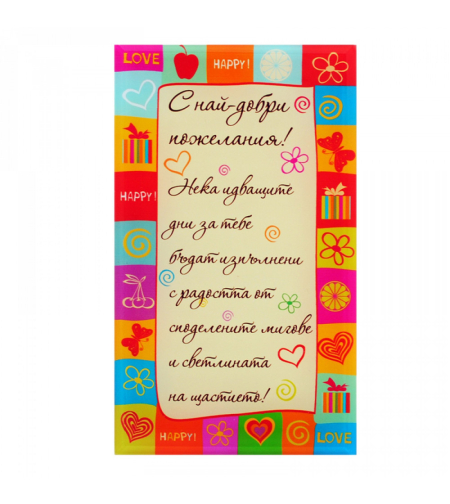 LOVE
HAPPY!
С най-добри
пожелания!
Нека идващите
HAPPY!
дни за тебе
бъдат изпълнени
с радостта от
споделените мигове
и светлината
на щастието!
HAPPY!
LOVE